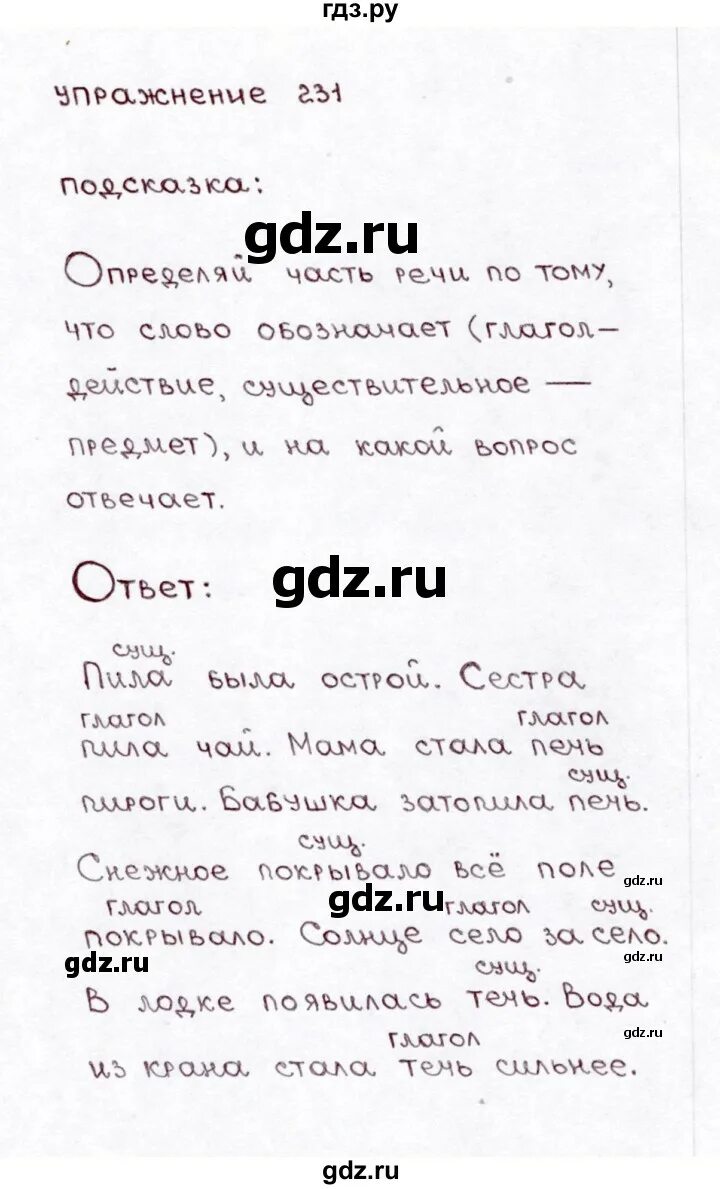 гдз.ру
упражнение 231
подсказка:
gdz.ru
Определяй часть речи по тому,
что слово обозначает (глагол-
действие, существительное —
предмет), и на какой вопрос
отвечает.
Ответ:
gdz.ru
сущ.
Пила была острой. Сестра
глагол глагол
пила чай. Мама стала печь
сущ.
пироги. Бабушка затопила печь.
сущ.
Снежное покрывало всё поле
gdz.ru
глагол gdz.ru глагол сущ.
покрывало. Солнце село за село.
gdz.ru gdz.ru
сущ.
В лодке появилась течь. Вода
gdz.ru
глагол
из крана стала течь сильнее.
gdz.ru